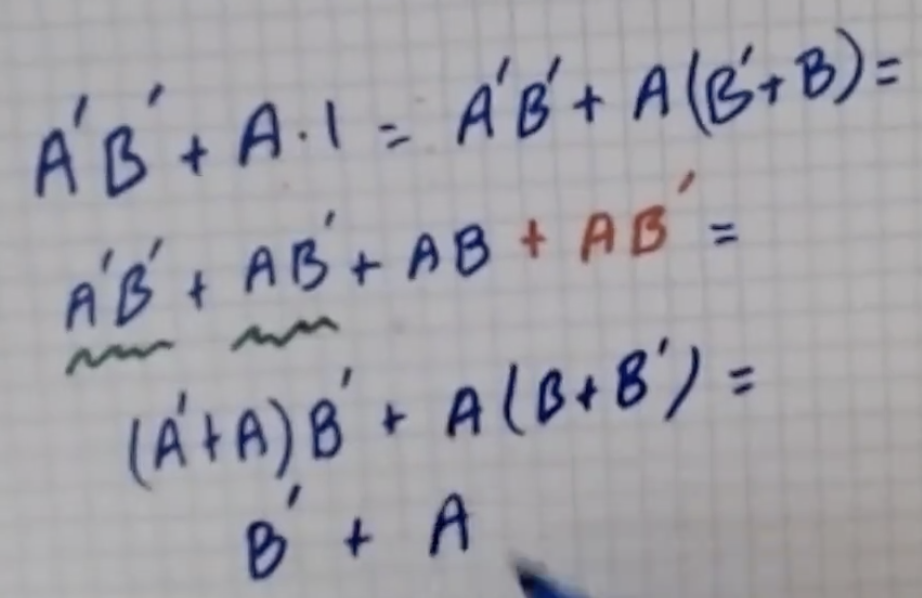 A'B' + A·1 = A'B' + A(B'+B)=
A'B' + AB' + AB + AB' =
(A'+A)B' + A(B+B') =
B' + A